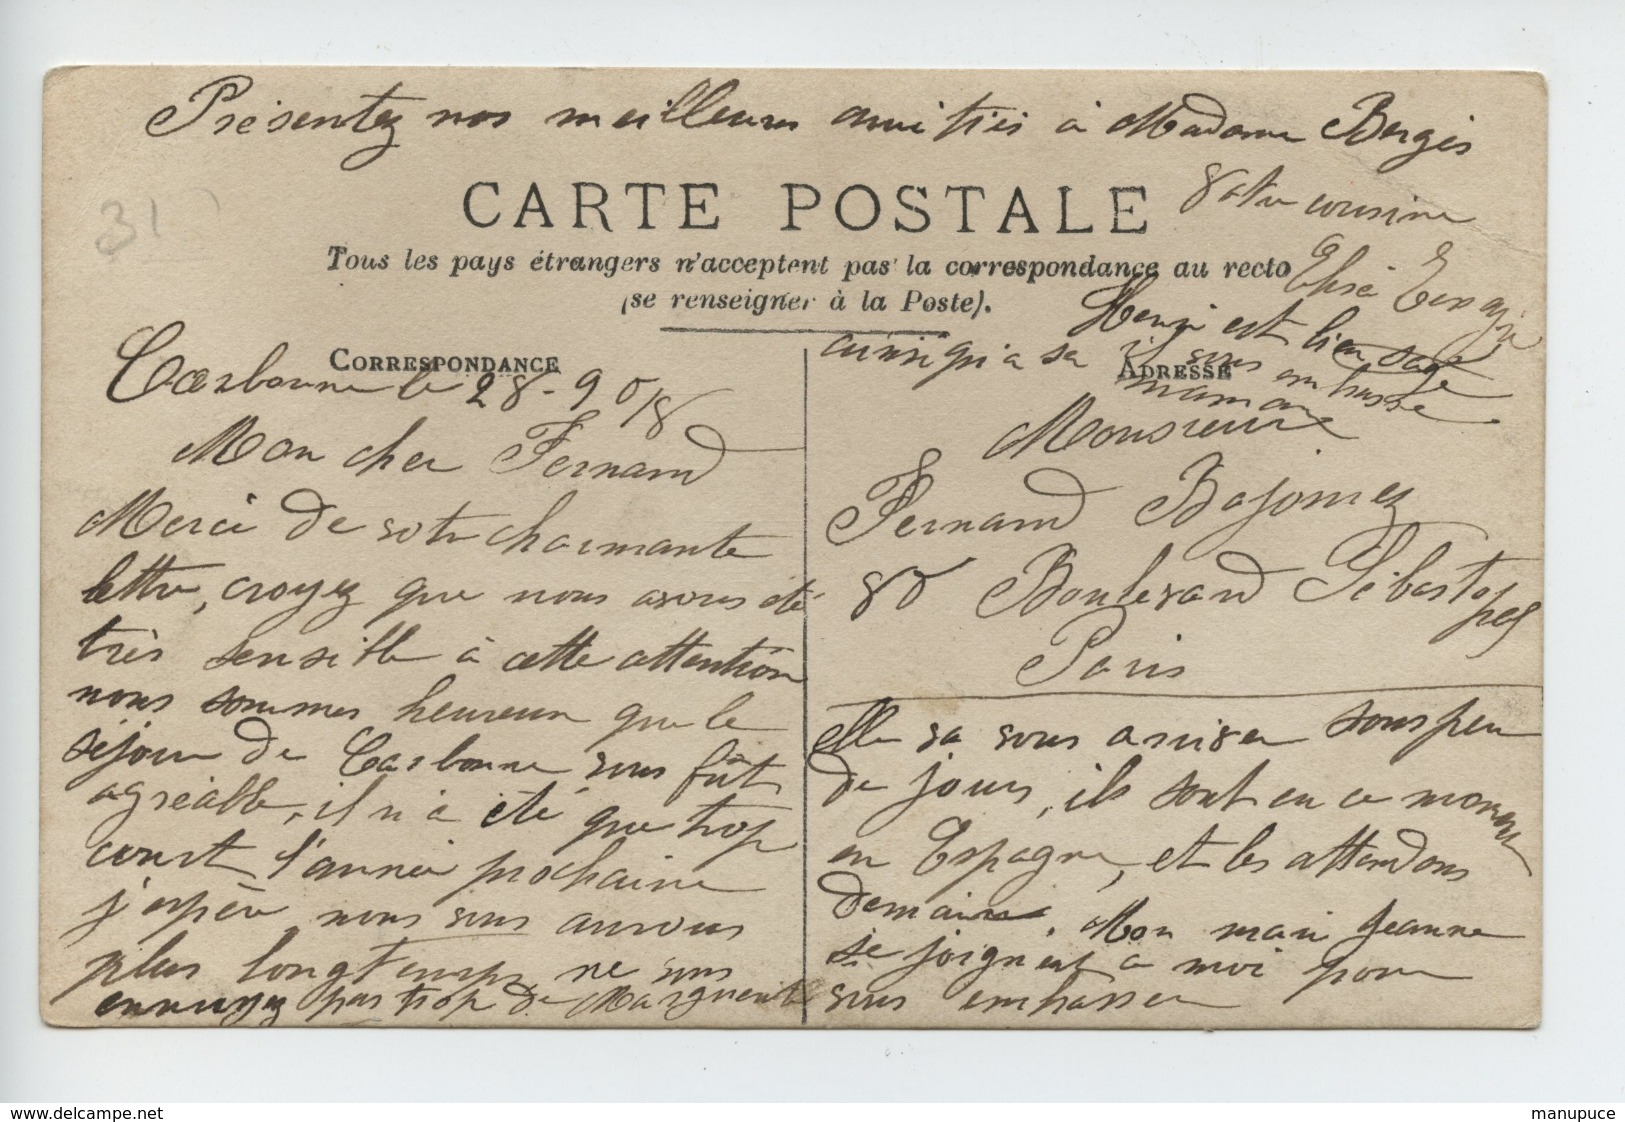 Présentez nos meilleures amitiés à Madame Bergès
CARTE POSTALE
Tous les pays étrangers n'acceptent pas la correspondance au recto
(se renseigner à la Poste).
31
CORRESPONDANCE
Carbonne le 28-908
Mon cher Fernand
Merci de votre charmante
lettre, croyez que nous avons été
très sensible à cette attention
nous sommes heureux que le
séjour de Carbonne vous fût
agréable, il n'a été que trop
court l'année prochaine
j'espère nous vous aurons
plus longtemps ne vous
ennuyez pas trop de Marguerite
ADRESSE
Monsieur
Fernand Bajomez
80 Boulevard Sébastopol
Paris
elle va vous arriver sous peu
de jours, ils sont en ce moment
en Espagne, et les attendons
demain. Mon mari Jeanne
se joignent à moi pour
vous embrasser
Votre cousine
Elisé
Henri est bien sage
il vous embrasse
ainsi qu'a sa
maman
delcampe.net
manupuce